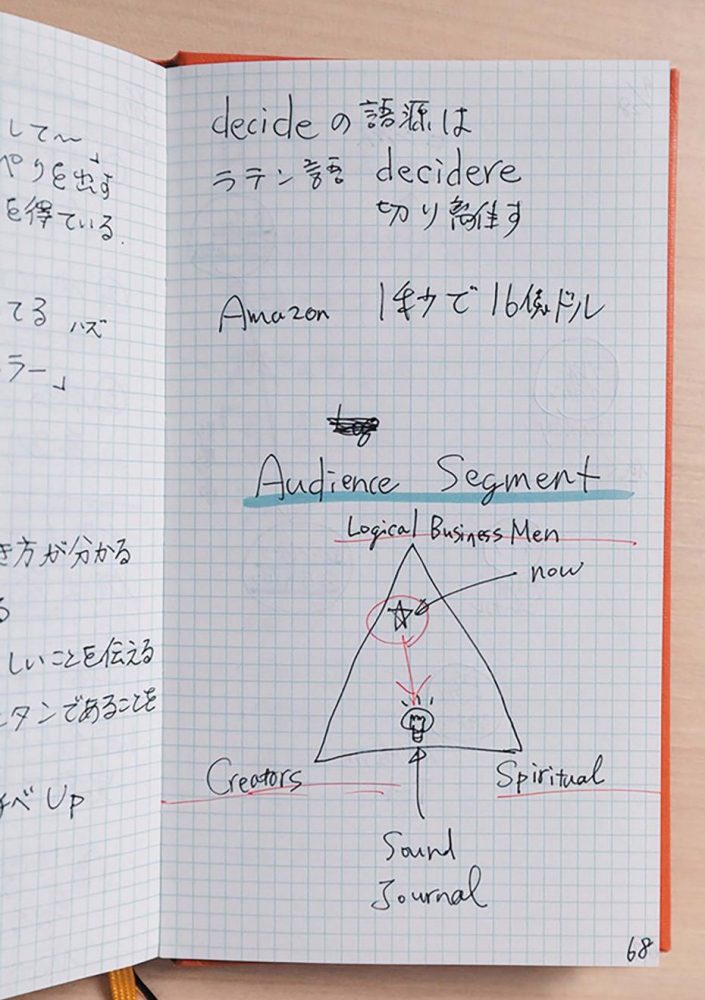 して〜
やりを出す
を得ている.
てる ハズ
ラー」
き方が分かる
る
しいことを伝える
タンであることを
べ Up
decideの語源は
ラテン語 decidere
切り離す
Amazon 1秒で16億ドル
Audience Segment
Logical Business Men
now
Creators
Spiritual
Sound
Journal
68